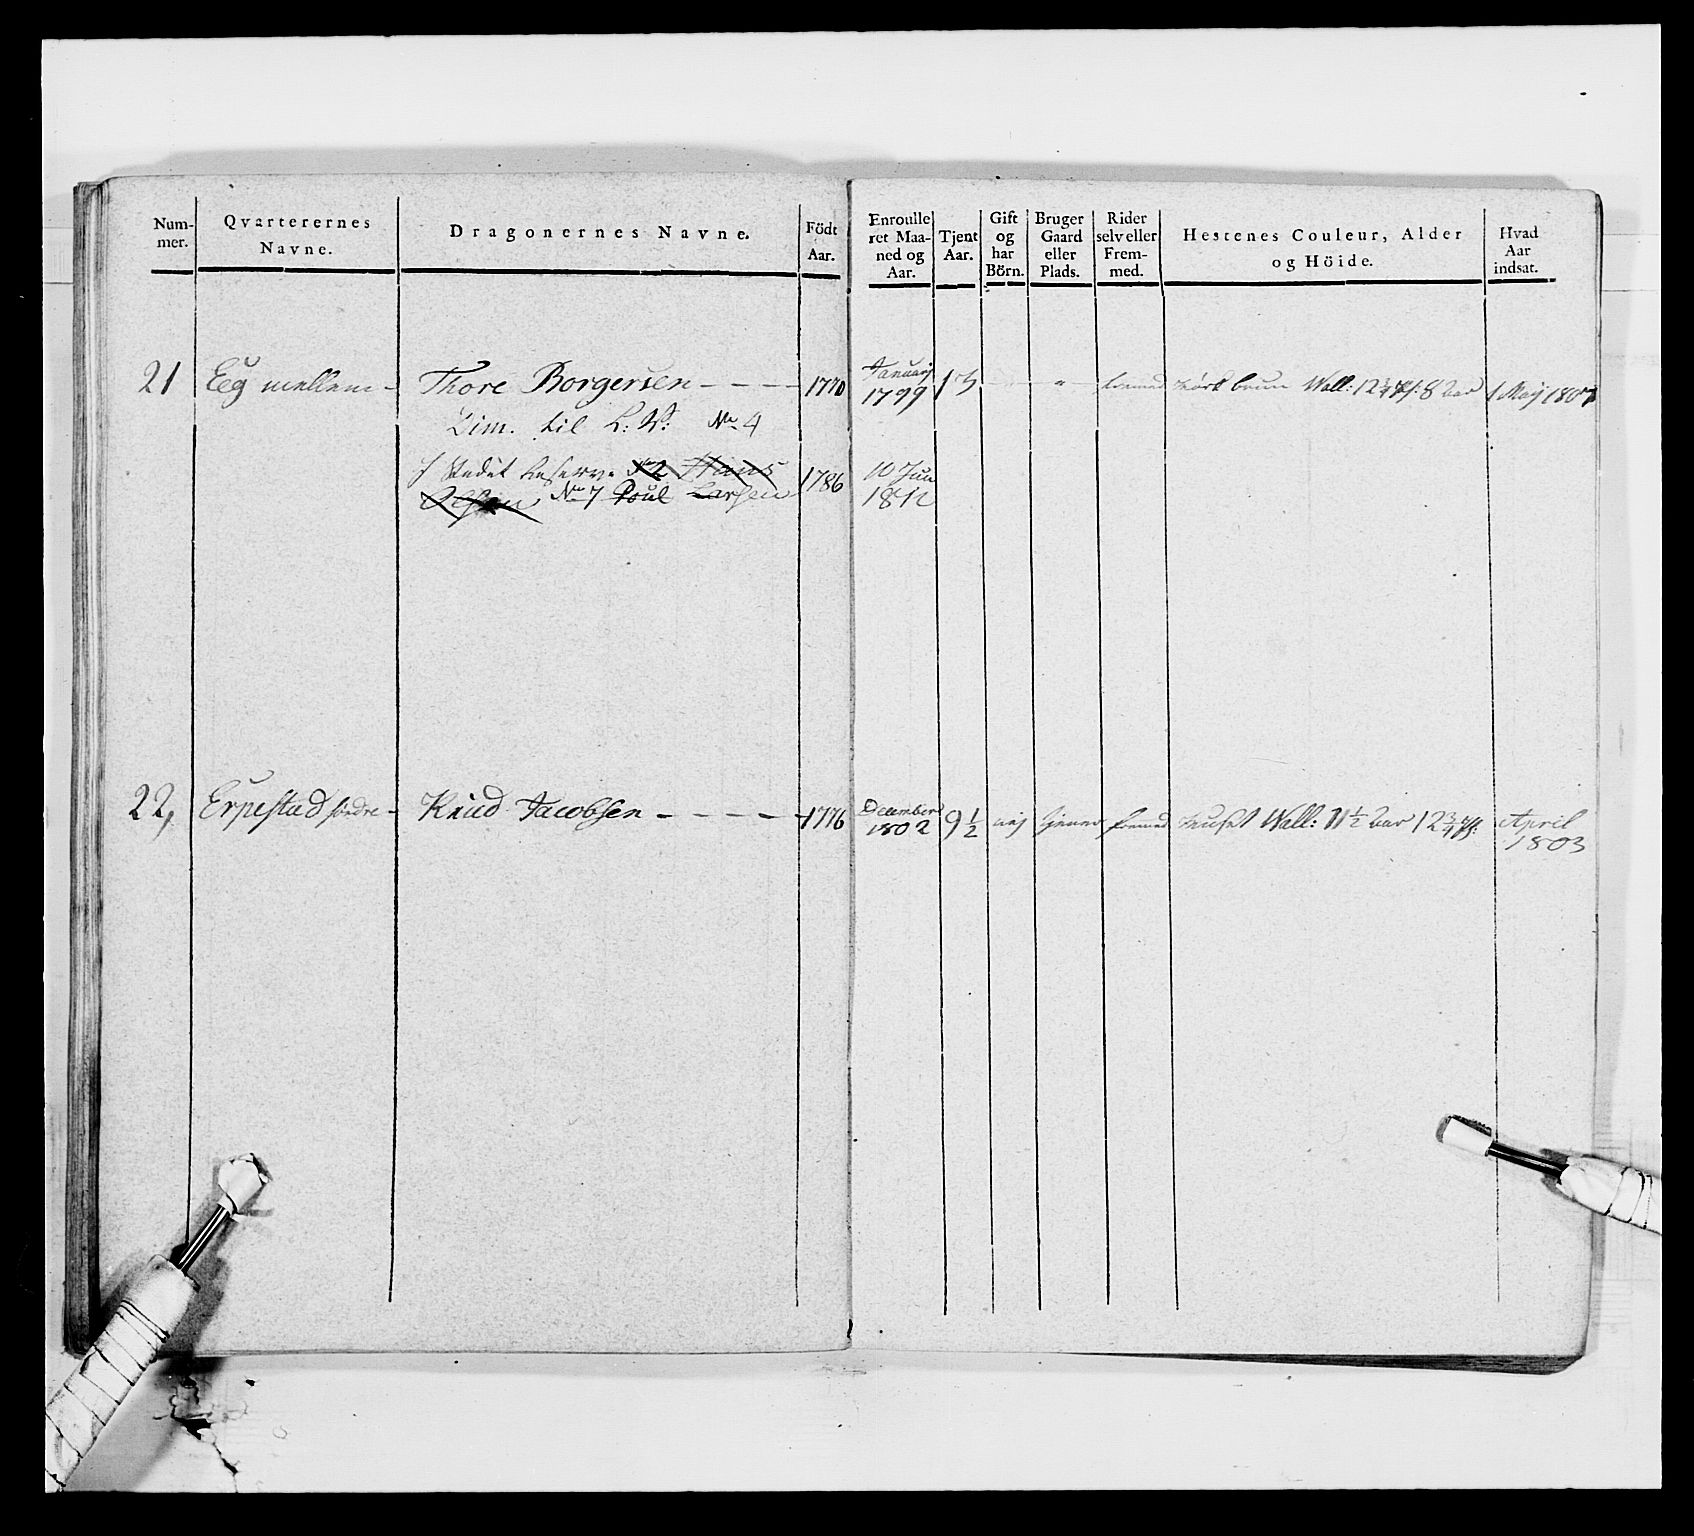 Num-
mer.
Qvarterernes
Navne.
Dragonernes Navne.
Födt
Aar.
Enroulle
ret Maa-
ned og
Aar.
Tjent
Aar.
Gift
og
har
Börn.
Bruger
Gaard
eller
Plads.
Rider
selv eller
Frem-
med.
Hestenes Couleur, Alder
og Höide.
Hvad
Aar
indsat.
21 Eeg mellem - Thore Borgersen - - - - 1770 Januarj 1799 13 fremed mörk bruun Wall: 12 8 Aar 1 Maij 1807
Dim. til L: W: No 4
J Stedet Reserve No 2 Hans
Olsen No 7 Poul Larsen 1786 10 Jun 1812
22, Erpestad söndre - Knud Jacobsen - - - - - 1776 December 1802 9 1/2 nej tjener fremed Wall: 11 1/2 Aar 12 3/4 April 1803